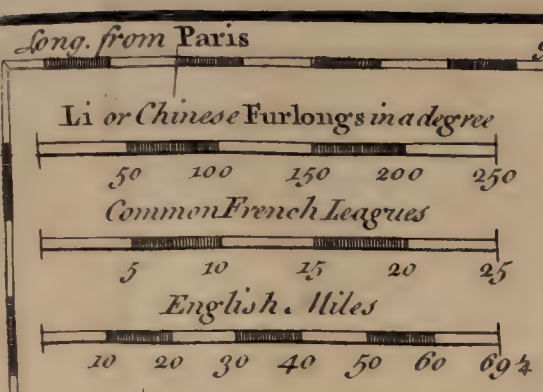 Long. from Paris
Li or Chinese Furlongs in a degree
50 100 150 200 250
Common French Leagues
5 10 15 20 25
English Miles
10 20 30 40 50 60 69¼